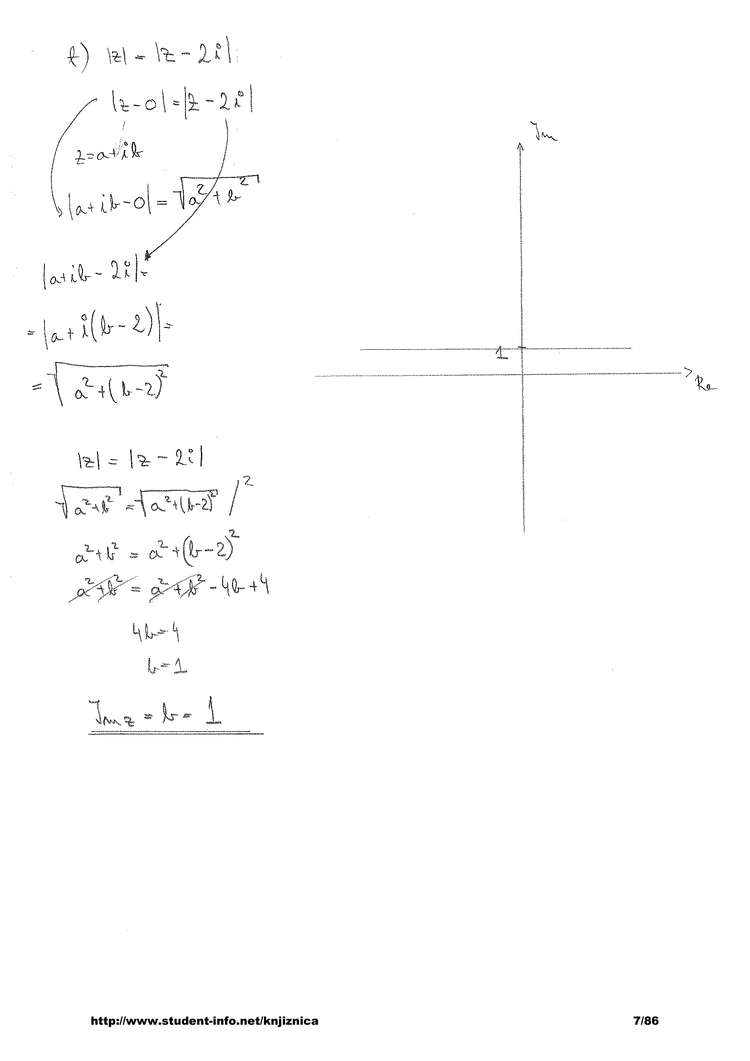 f) |z| = |z - 2i|
|z - 0| = |z - 2i|
z = a + ib
|a + ib - 0| = √(a² + b²)
|a + ib - 2i| =
= |a + i(b - 2)| =
= √(a² + (b - 2)²)
|z| = |z - 2i|
√(a² + b²) = √(a² + (b - 2)²) /²
a² + b² = a² + (b - 2)²
a² + b² = a² + b² - 4b + 4
4b = 4
b = 1
Im z = b = 1
Im
1
Re
http://www.student-info.net/knjiznica
7/86